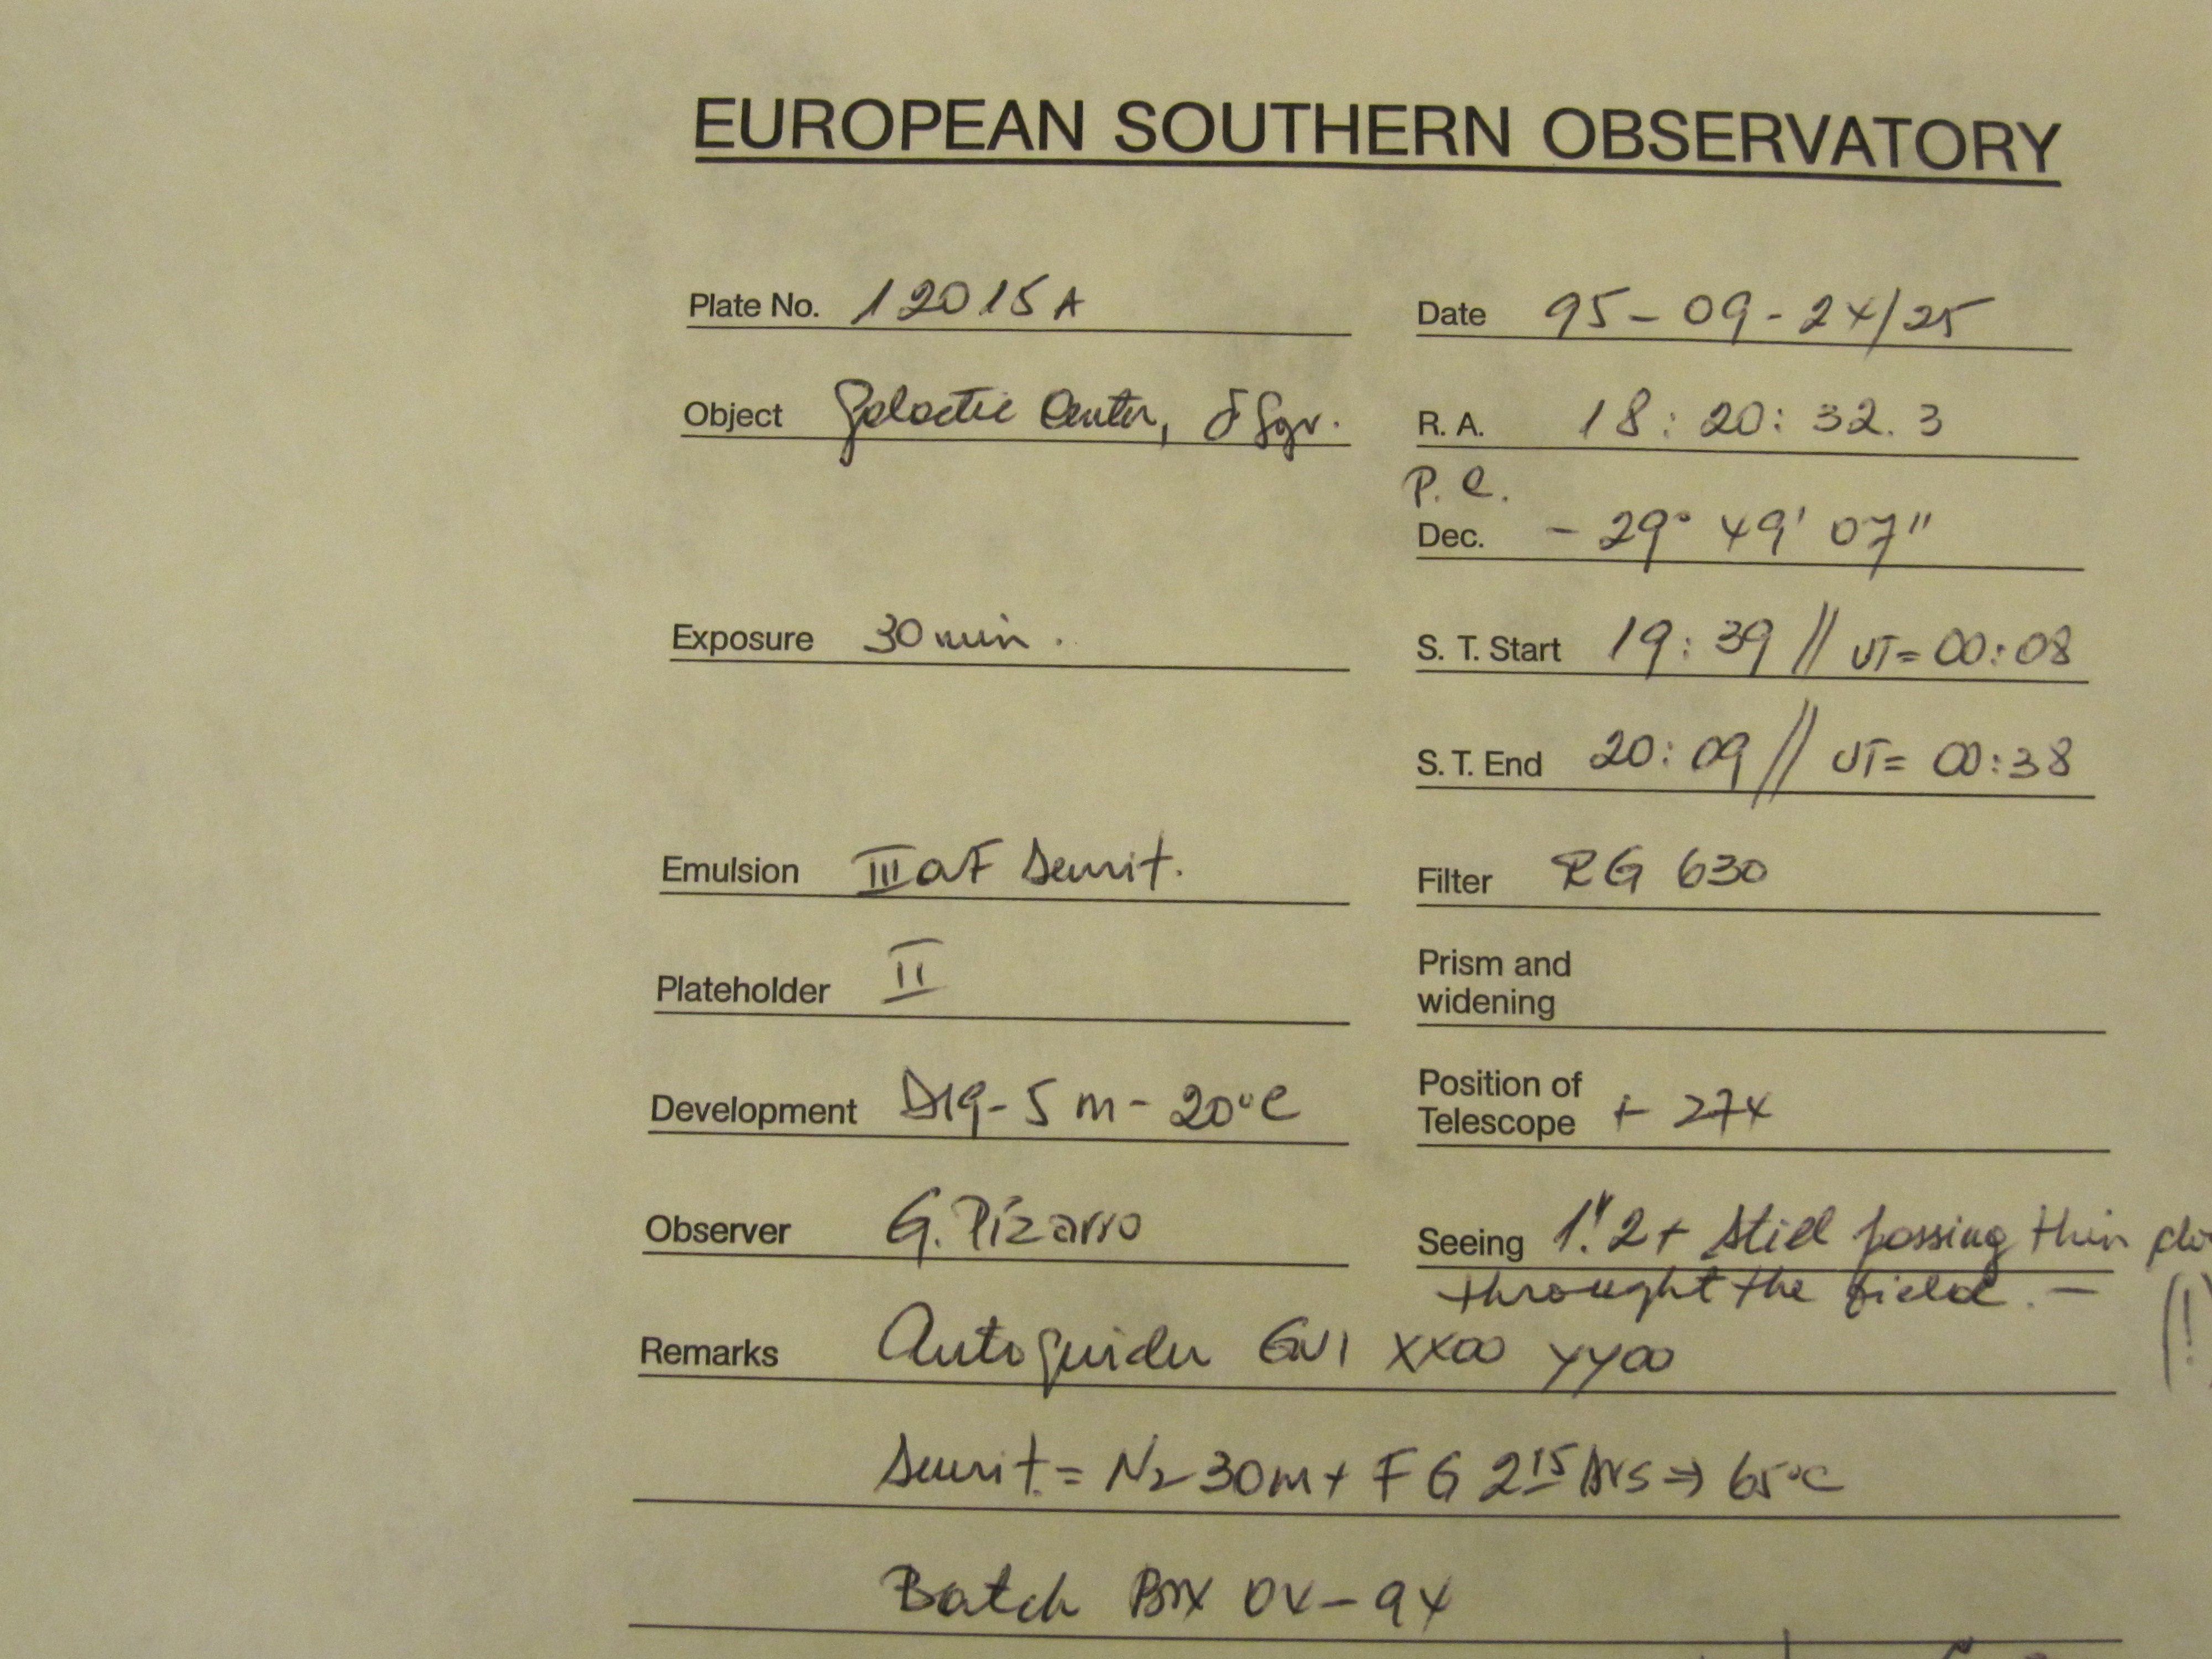 EUROPEAN SOUTHERN OBSERVATORY
Plate No. 12015A
Date 95-09-24/25
Object Galactic Center, δ Sgr.
R. A. 18:20:32.3
P. C.
Dec. -29° 49' 07"
Exposure 30 min.
S. T. Start 19:39 // UT=00:08
S. T. End 20:09 // UT=00:38
Emulsion IIIaF Sensit.
Filter RG 630
Plateholder II
Prism and
widening
Development D19-5m-20°C
Position of
Telescope + 274
Observer G. Pizarro
Seeing 1".2+ Still passing thin
throught the field.-
(!)
Remarks Autoguider GV1 XX00 YY00
Sensit.= N2-30m+ FG 2 15 hrs ⇒ 65°C
Batch Box 04-94